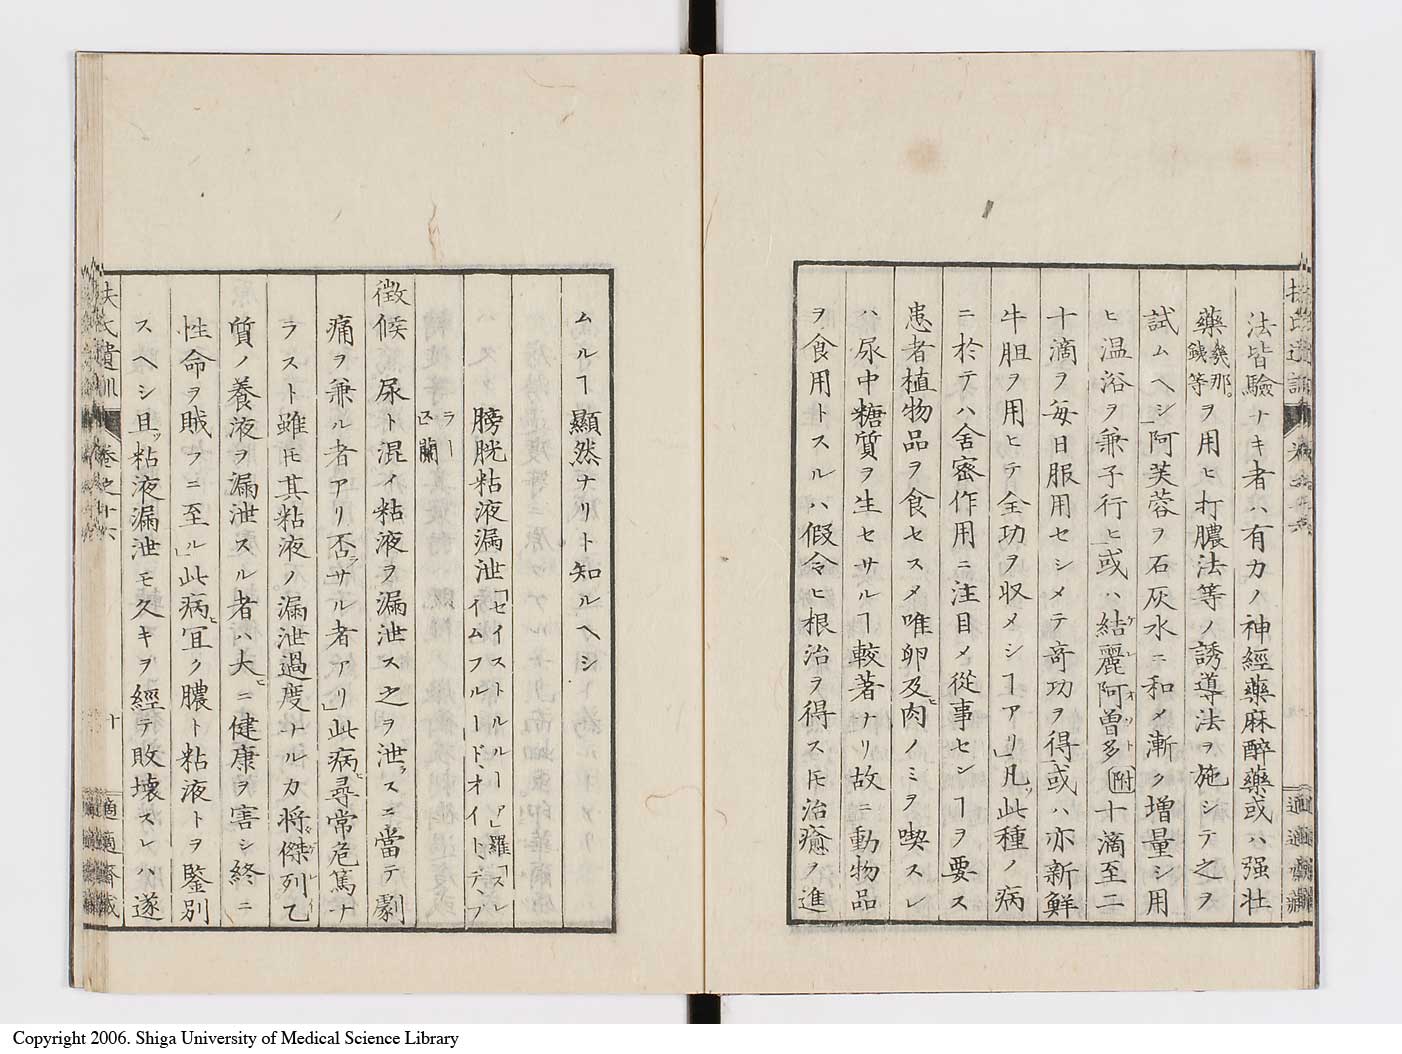 法皆驗ナキ者ハ有力ノ神經藥麻醉藥或ハ强壯
藥幾那。鐵等ヲ用ヒ打膿法等ノ誘導法ヲ施シテ之ヲ
試ムヘシ」阿芙蓉ヲ石灰水ニ和メ漸ク增量シ用
ヒ温浴ヲ兼子行ヒ」或ハ結麗阿曾多附十滴至二
十滴ヲ每日服用セシメテ奇功ヲ得」或ハ亦新鮮
牛胆ヲ用ヒテ全功ヲ収メシヿアリ」凡ソ此種ノ病
ニ於テハ舍密作用ニ注目メ從事センヿヲ要ス
患者植物品ヲ食セスメ唯卵及ヒ肉ノミヲ喫スレ
ハ尿中糖質ヲ生セサルヿ較著ナリ故ニ動物品
ヲ食用トスルハ假令ヒ根治ヲ得スㇳモ治癒ヲ進
扶氏遺訓
卷之十六
十
適適齋藏
ムルヿ顯然ナリト知ルヘシ
膀胱粘液漏泄「セイストルルーア」羅「スレイムフルード、オイト、デ、ブラー
ス」蘭
徵候 尿ト混ノ粘液ヲ漏泄ス之ヲ泄ラスニ當テ劇
痛ヲ兼ル者アリ否ラサル者アリ」此病ヒ尋常危篤ナ
ラスト雖ㇳモ其粘液ノ漏泄過度ナルカ將タ傑列乙
質ノ養液ヲ漏泄スル者ハ大ヒニ健康ヲ害シ終ニ
性命ヲ賊フニ至ル」此病ヒ宜ク膿ト粘液トヲ鑒別
スヘシ且ツ粘液漏泄モ久キヲ經テ敗壞スレハ遂